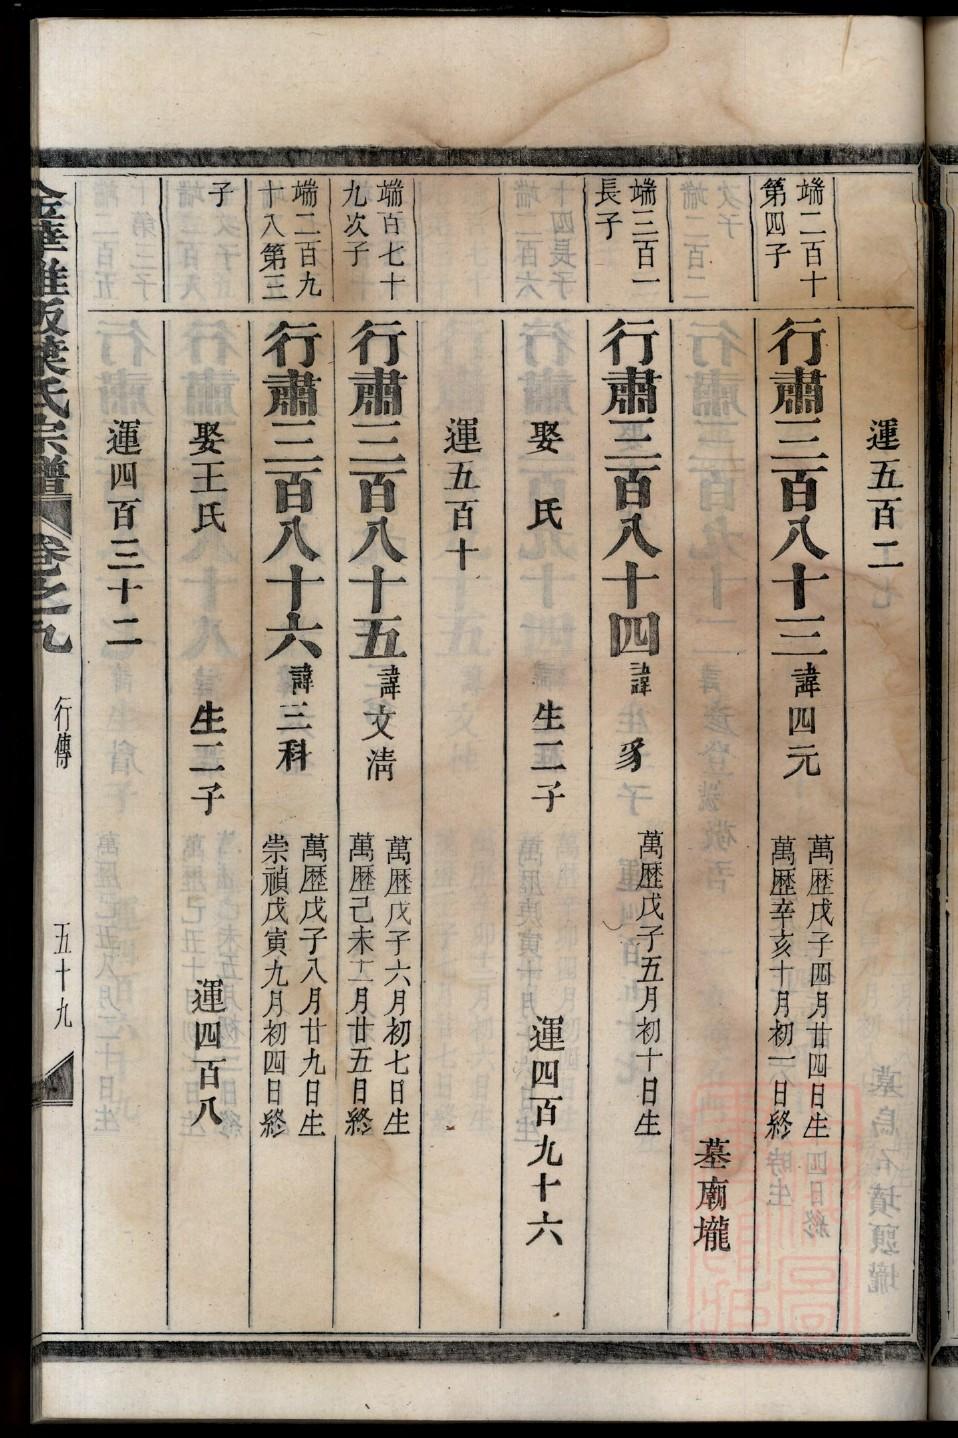 運五百二
端二百十
第四子
行肅三百八十三 諱四元
萬歷戊子四月廿四日生
萬歷辛亥十月初一日終
墓廟壠
端三百一
長子
行肅三百八十四 諱豸
萬歷戊子五月初十日生
娶 氏 生三子 運四百九十六
運五百十
端百七十
九次子
行肅三百八十五 諱文清
萬歷戊子六月初七日生
萬歷己未十一月廿五日終
端二百九
十八第三
子
行肅三百八十六 諱三科
萬歷戊子八月廿九日生
崇禎戊寅九月初四日終
娶王氏 生二子 運四百八
運四百三十二
葉氏宗譜 卷之九 行傳 五十九